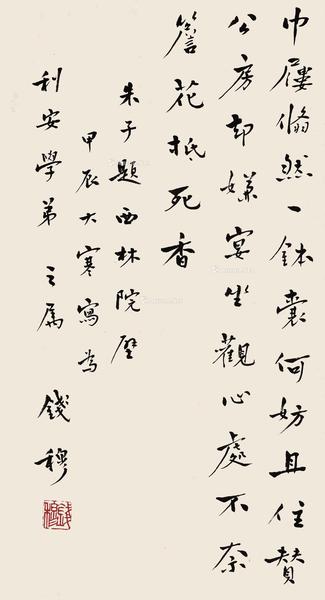 巾屨翛然一鉢囊何妨且住贊
公房却嫌宴坐觀心處不奈
簷花抵死香
朱子題西林院壁
甲辰大寒寫為
利安學弟之属 錢穆
錢穆